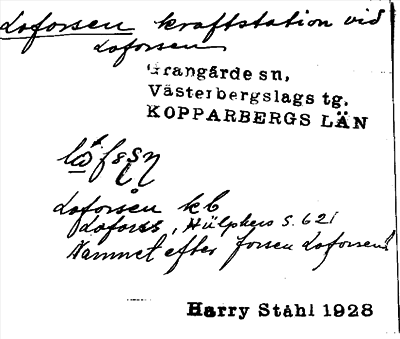 Loforsen kraftstation vid
Loforsen
Grangärde sn,
Västerbergslags tg.
KOPPARBERGS LÄN
Loforsen kb
Loforss, Hülphers S. 621
Namnet efter forsen Loforsen
Harry Ståhl 1928